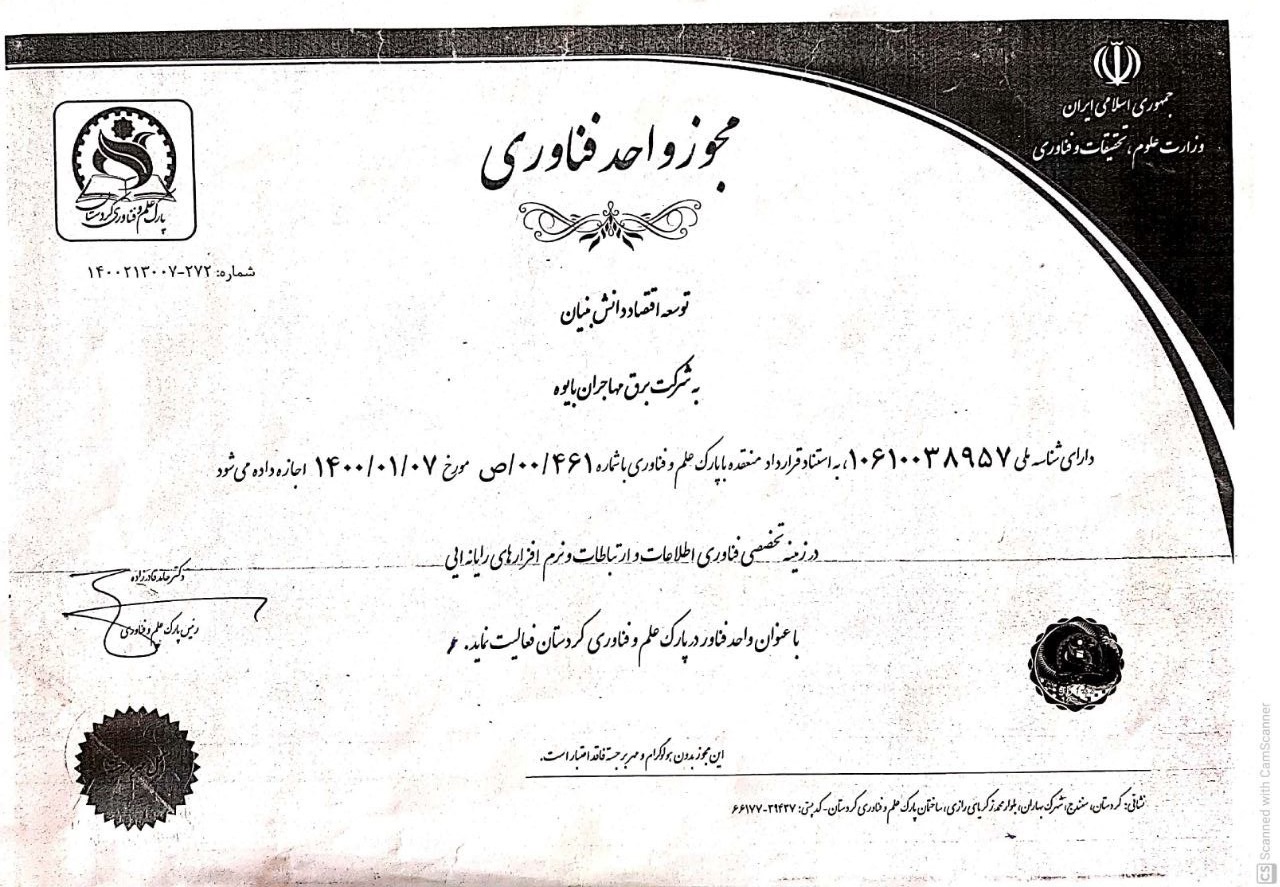 جمهوری اسلامی ایران
وزارت علوم، تحقیقات و فناوری
پارک علم و فناوری کردستان
مجوز واحد فناوری
شماره: ۲۷۲-۱۴۰۰۲۱۳۰۰۷
توسعه اقتصاد دانش بنیان
به شرکت برق مهاجران بایوه
دارای شناسه ملی ۱۰۶۱۰۰۳۸۹۵۷، به استناد قرارداد منعقده با پارک علم و فناوری با شماره ۴۶۱/۰۰/ص مورخ ۱۴۰۰/۰۱/۰۷ اجازه داده می شود
در زمینه تخصصی فناوری اطلاعات و ارتباطات و نرم افزارهای رایانه ایی
با عنوان واحد فناور در پارک علم و فناوری کردستان فعالیت نماید.
دکتر حامد قادرزاده
رئیس پارک علم و فناوری
این مجوز بدون هولوگرام و مهر برجسته فاقد اعتبار است.
نشانی: کردستان، سنندج، شهرک بهاران، بلوار محمد زکریای رازی، ساختمان پارک علم و فناوری کردستان - کد پستی: ۳۹۴۳۷-۶۶۱۷۷
CS Scanned with CamScanner